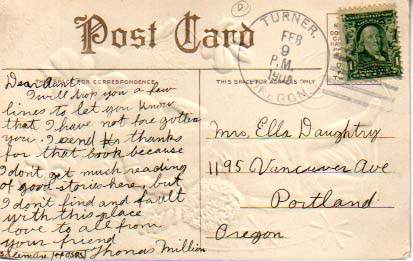 Post Card
THIS SPACE FOR CORRESPONDENCE
THIS SPACE FOR ADDRESS ONLY
TURNER,
FEB
9
P.M.
OREGON.
Dear Aunt
I will drop you a few
lines to let you know
that I have not forgotten
you. I send thanks
for that book because
I dont get much reading
of good stories here, but
I don't find and fault
with this place
love to all from
your friend
Thomas Million
Mrs. Ella Daughtry
1195 Vancouver Ave
Portland
Oregon